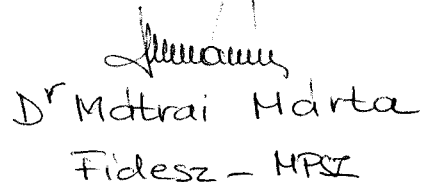 Dr Mátrai Márta
Fidesz - MPSZ